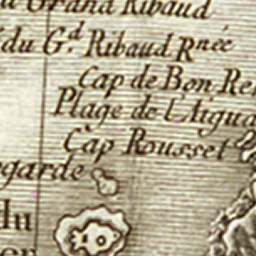 du Grand Ribaud
du G.d Ribaud R née
Cap de Bon Re
Plage de l'Aigua
Cap Rousset
egarde
du
er